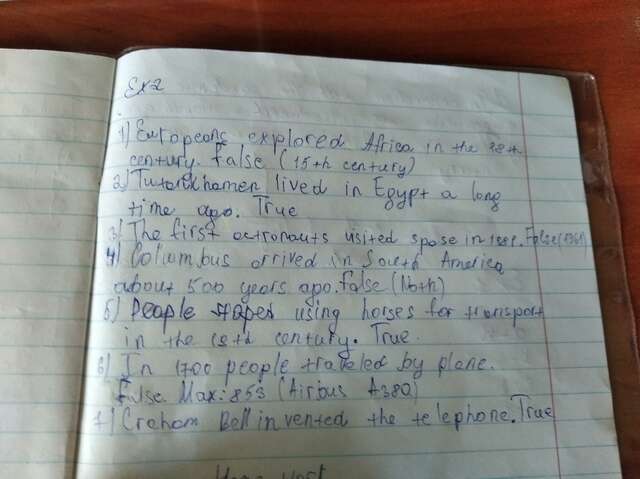 Ex2
1) Europeans explored Africa in the 18th
century. False (15th century)
2) Tutankhamen lived in Egypt a long
time ago. True
3) The first actronauts visited spose in 1981. False (1961)
4) Columbus arrived in South America
about 500 years ago. false (Noth)
5) People using horses for transport
in the 18th century. True.
6) In 1700 people traveled by plane.
False Max: 853 (Airbus A380)
7) Craham Bell invented the telephone. True